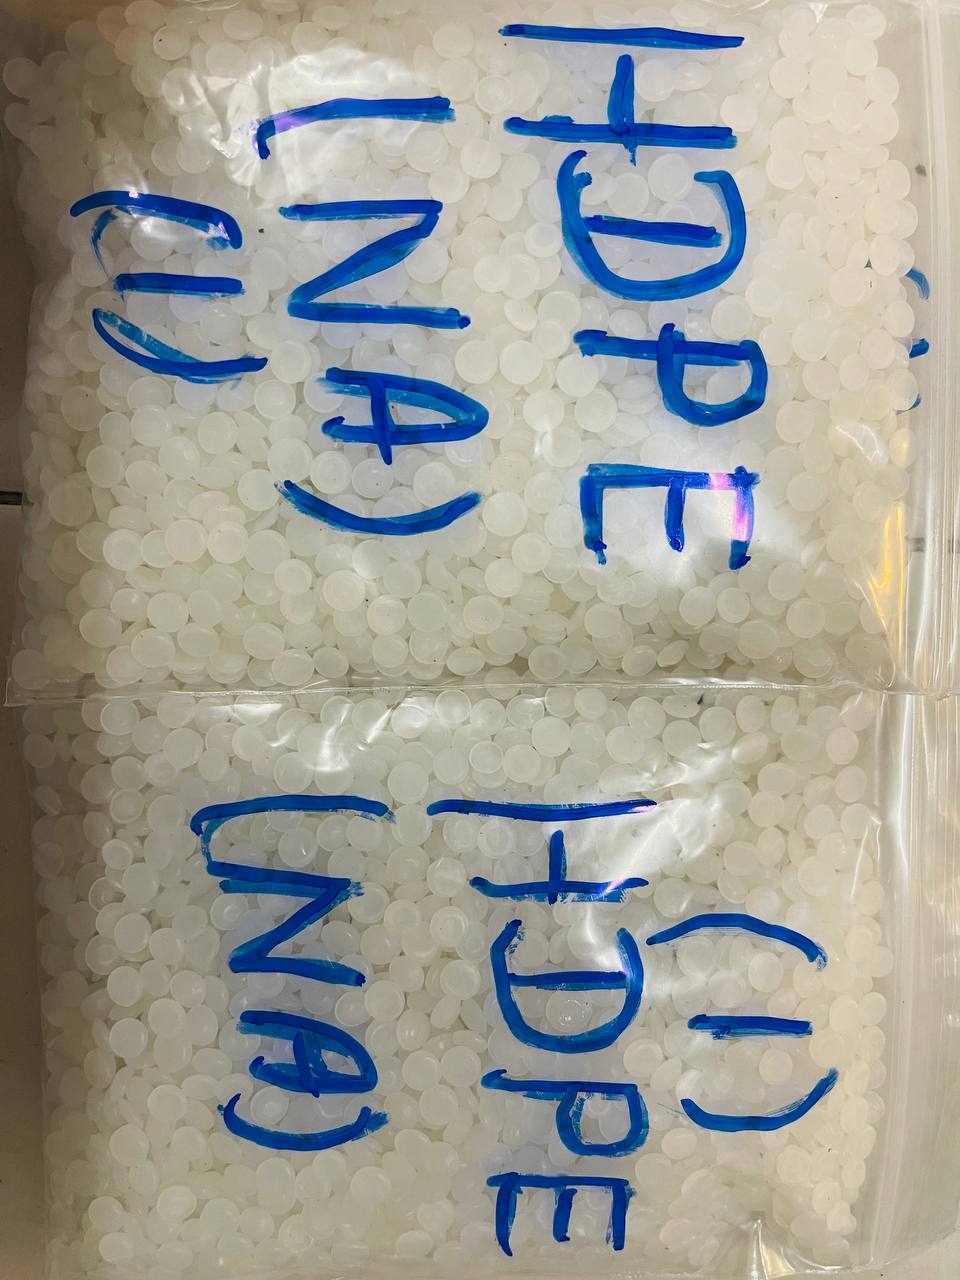 HDPE
(NA)
(1)
(1)
HDPE
(NA)